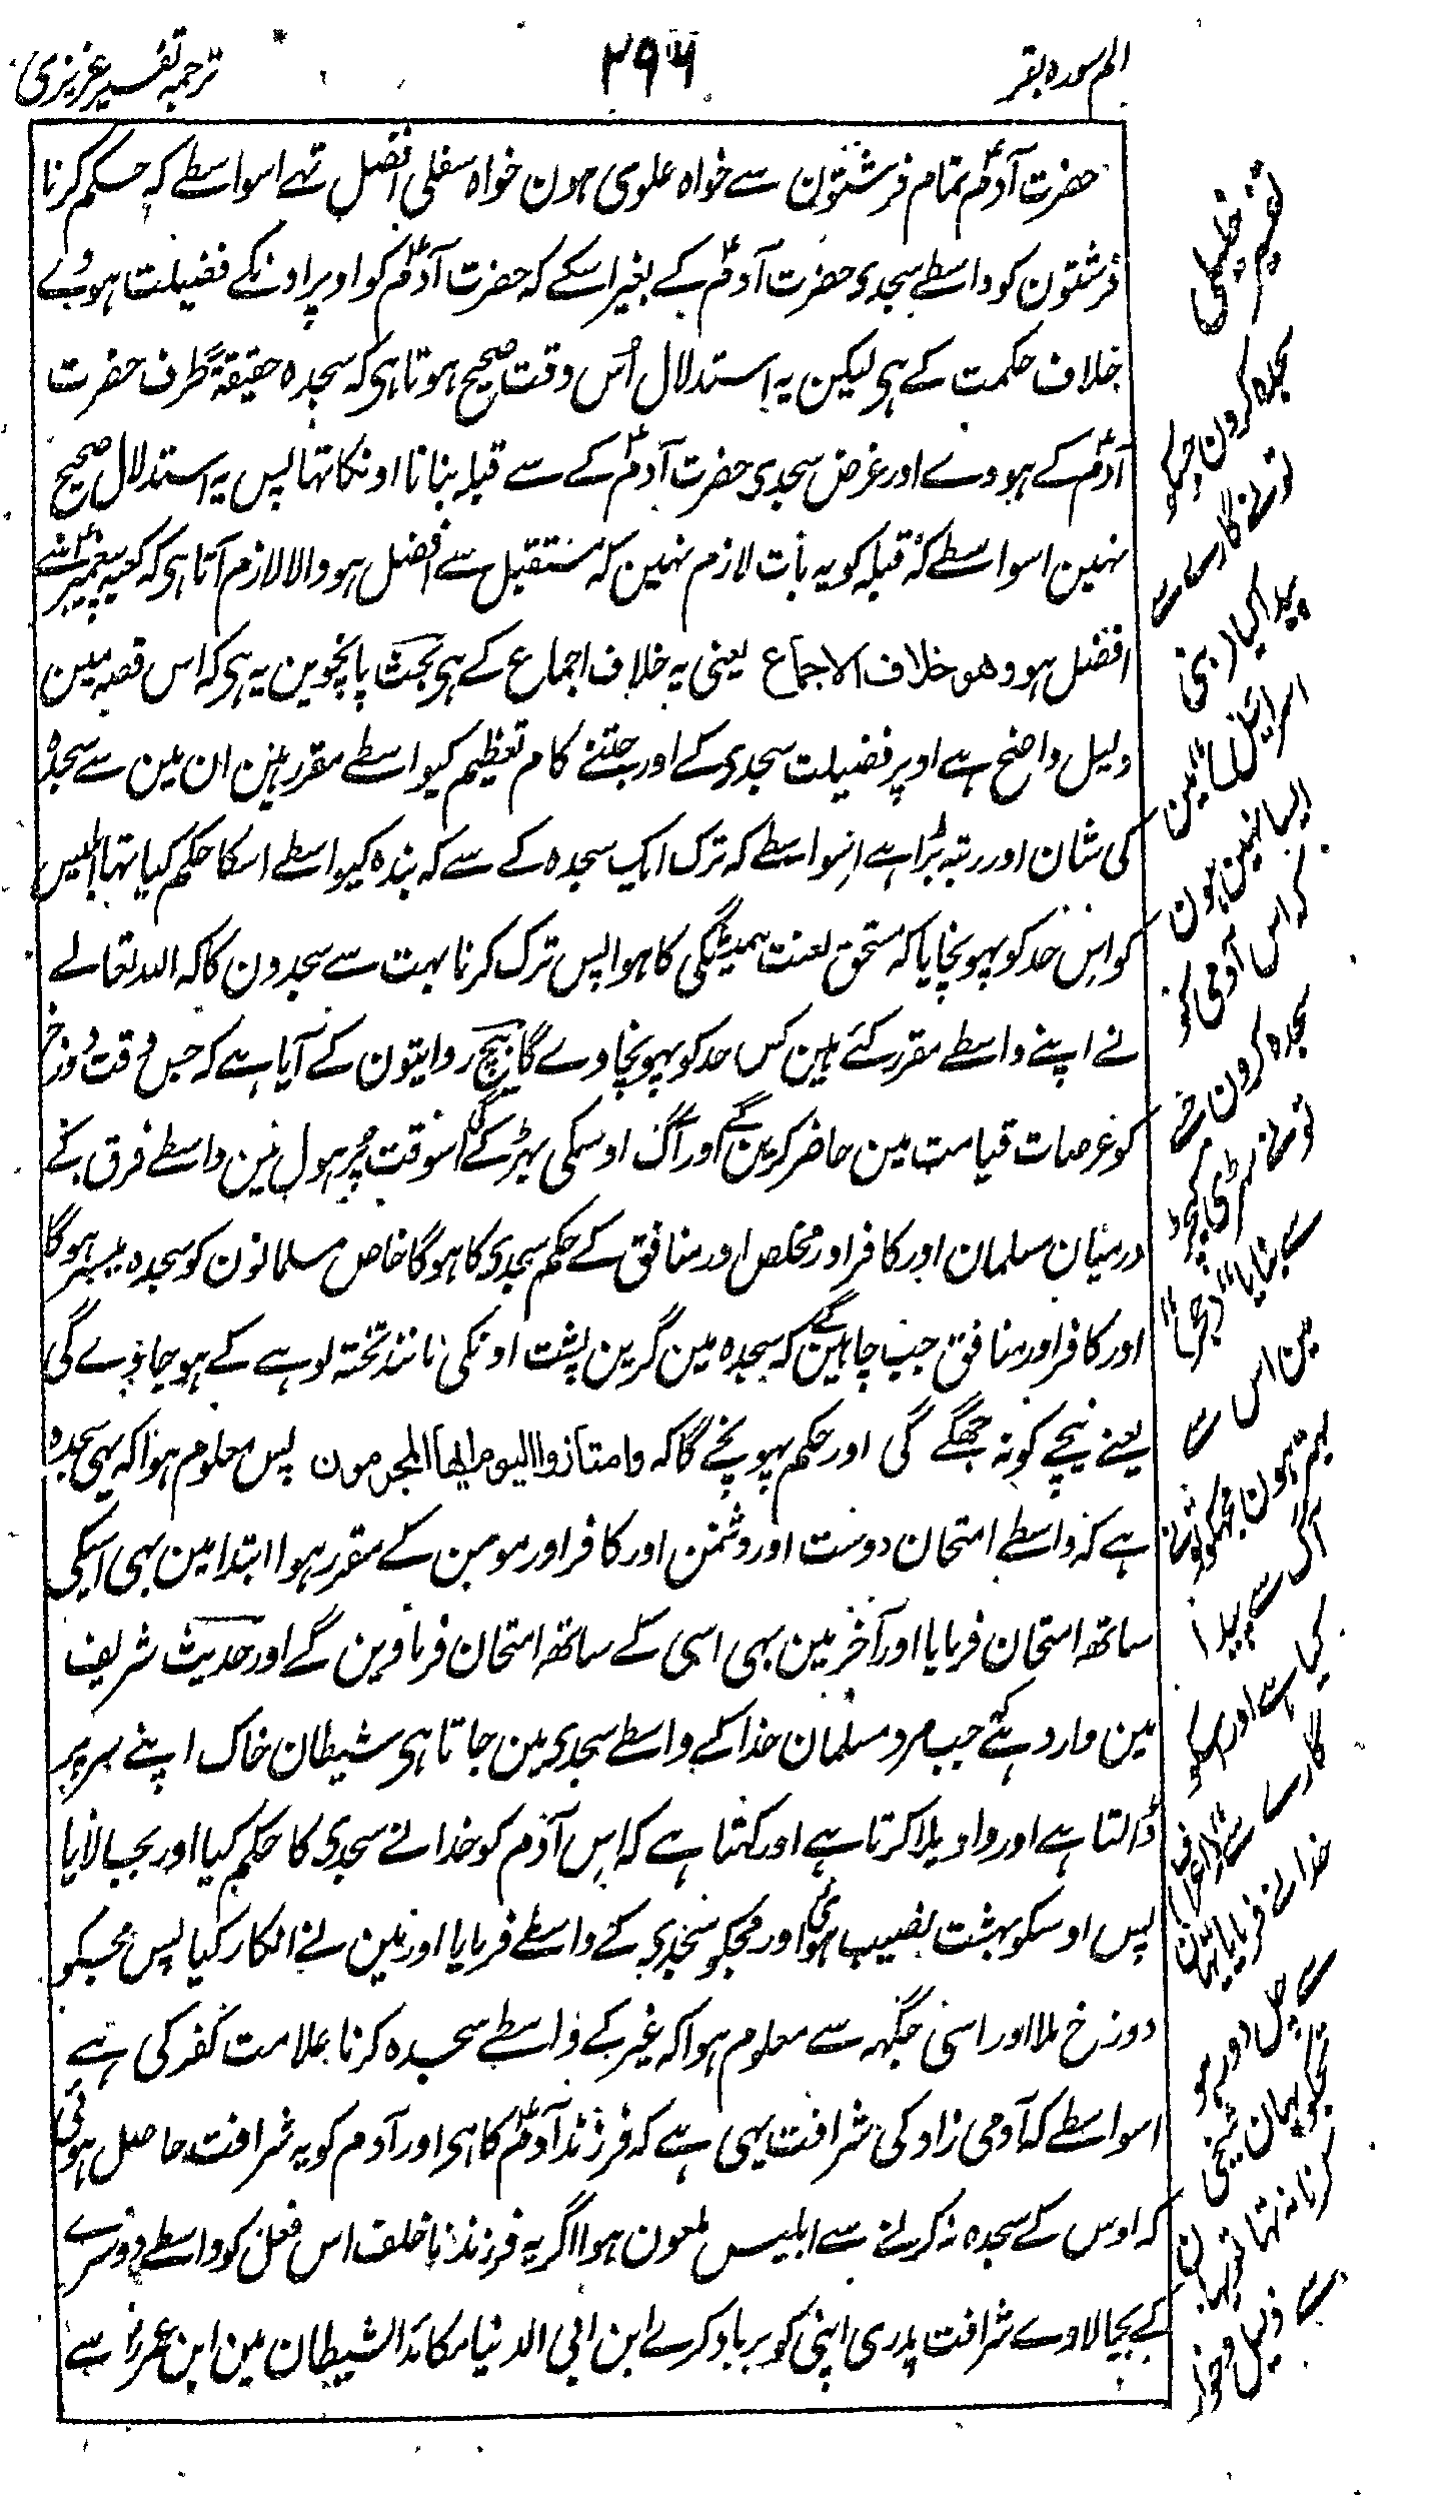 الم سوره بقر
۲۹۶
ترجمہ تفسیر عزیزی
حضرت آدمؑ تمام فرشتون سے خواہ علوی ہون خواہ سفلی افضل تہے اسواسطے کہ حکم کرنا
فرشتون کو واسطے سجدی حضرت آدمؑ کے بغیر اسکے کہ حضرت آدمؑ کو اوپر اونکے فضیلت ہووے
خلاف حکمت کے ہی لیکن یہ استدلال اُس وقت صحیح ہوتا ہی کہ سجدہ حقیقۃً طرف حضرت
آدمؑ کے ہووے اور غرض سجدی حضرت آدمؑ کے سے قبلہ بنانا اونکا تہا پس یہ استدلال صحیح
نہین اسواسطے کہ قبلہ کو یہ بات لازم نہین کہ مستقبل سے افضل ہو والا لازم آتا ہی کہ کعبہ پیغمبر سے
افضل ہو وھو خلاف الاجماع یعنی یہ خلاف اجماع کے ہی بحث پانچوین یہ ہی کہ اس قصہ مین
دلیل واضح ہے اوپر فضیلت سجدی کے اور جتنے کام تعظیم کیواسطے مقرر ہین ان مین سے سجدہ
کی شان اور رتبہ بڑا ہے اسواسطے کہ ترک ایک سجدہ کے سے کہ بندہ کیواسطے اسکا حکم کیا تہا ابلیس
کو اس حد کو پہونچایا کہ مستحق لعنت ہمیشگی کا ہوا پس ترک کرنا بہت سے سجدون کا کہ اللہ تعالے
نے اپنے واسطے مقرر کئے ہین کس حد کو پہونچاوے گا بیچ روایتون کے آیا ہے کہ جس وقت دوزخ
کو عرصات قیامت مین حاضر کرین گے اور آگ اوسکی بہڑکے گی اسوقت پُر ہول مین واسطے فرق کے
درمیان مسلمان اور کافر اور مخلص اور منافق کے حکم سجدی کا ہوگا خاص مسلمانون کو سجدہ میسر ہوگا
اور کافر اور منافق جب چاہین گے کہ سجدہ مین گرین پشت اونکی مانند تختہ لوہے کے ہو جاوے گی
یعنے نیچے کو نہ جھکے گی اور حکم پہونچے گا کہ وامتازوا الیوم ایھا المجرمون پس معلوم ہوا کہ یہی سجدہ
ہے کہ واسطے امتحان دوست اور دشمن اور کافر اور مومن کے مقرر ہوا ابتدا مین بہی اسکی
ساتھ امتحان فرمایا اور آخر مین بہی اسی کے ساتھ امتحان فرماوین گے اور حدیث شریف
مین وارد ہے جب مرد مسلمان خدا کے واسطے سجدی مین جاتا ہی شیطان خاک اپنے سر پر
ڈالتا ہے اور واویلا کرتا ہے اور کہتا ہے کہ اس آدم کو خدا نے سجدی کا حکم کیا اور بجا لایا
پس اوسکو بہشت نصیب ہوئی اور مجکو سجدی کے واسطے فرمایا اور مین نے انکار کیا پس مجکو
دوزخ ملا اور اسی جگہہ سے معلوم ہوا کہ غیر کے واسطے سجدہ کرنا علامت کفر کی ہے
اسواسطے کہ آدمی زاد کی شرافت یہی ہے کہ فرزند آدمؑ کا ہی اور آدم کو یہ شرافت حاصل ہوئی
کہ اوس کے سجدہ نہ کرنے سے ابلیس ملعون ہوا اگر یہ فرزند ناخلف اس فعل کو واسطے دوسرے
کے بجا لاوے شرافت پدری اپنی کو برباد کرے ابن ابی الدنیا مکائد الشیطان مین ابن عمرؓ سے
سجدہ کرون جسکو
تونے گارے سے
پیدا کیا
ایسا نہین ہون
کہ اس آدمی کو
سجدہ کرون جسے
تونے
سے بنایا
مین اس سے
بہتر ہون مجھکو تونے
آگ سے پیدا
کیا ہے اور اسکو
گارے سے
خدا نے فرمایا
سے نکل دور ہو
تجکو یہان شیخی
کرنا نہ تہا
سے ذلیل و خوار